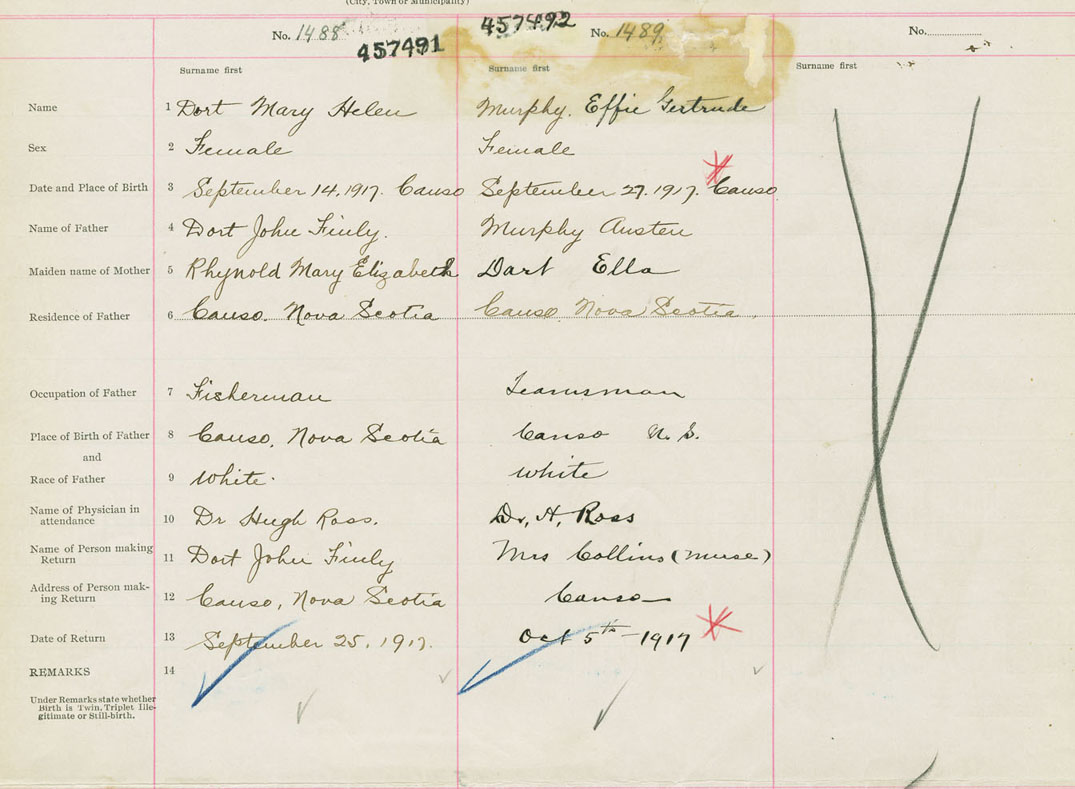 (City, Town or Municipality)
No. 1488
457491
457492
No. 1489
No.
Surname first
Surname first
Surname first
Name 1 Dort Mary Helen Murphy. Effie Gertrude
Sex 2 Female Female
Date and Place of Birth 3 September 14, 1917. Canso September 27. 1917. Canso
Name of Father 4 Dort John Finly. Murphy Austen
Maiden name of Mother 5 Rhynold Mary Elizabeth Dart Ella
Residence of Father 6 Canso. Nova Scotia Canso Nova Scotia.
Occupation of Father 7 Fisherman Teamsman
Place of Birth of Father 8 Canso, Nova Scotia Canso N. S.
and
Race of Father 9 White. White
Name of Physician in
attendance 10 Dr Hugh Ross. Dr, H, Ross
Name of Person making
Return 11 Dort John Finly Mrs Collins (nurse)
Address of Person mak-
ing Return 12 Canso, Nova Scotia Canso
Date of Return 13 September 25, 1917. Oct 5th - 1917
REMARKS 14
Under Remarks state whether
Birth is Twin, Triplet Ille-
gitimate or Still-birth.